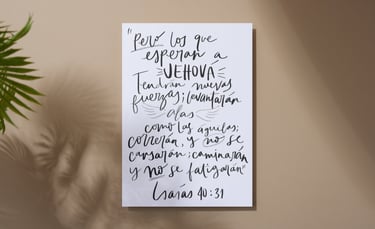 "Pero los que
esperan á
JEHOVÁ
Tendrán nuevas
fuerzas; levantarán
alas
como las aguilas;
correrán, y no se
cansarán; caminarán
y no se fatigarán"
Isaías 40:31